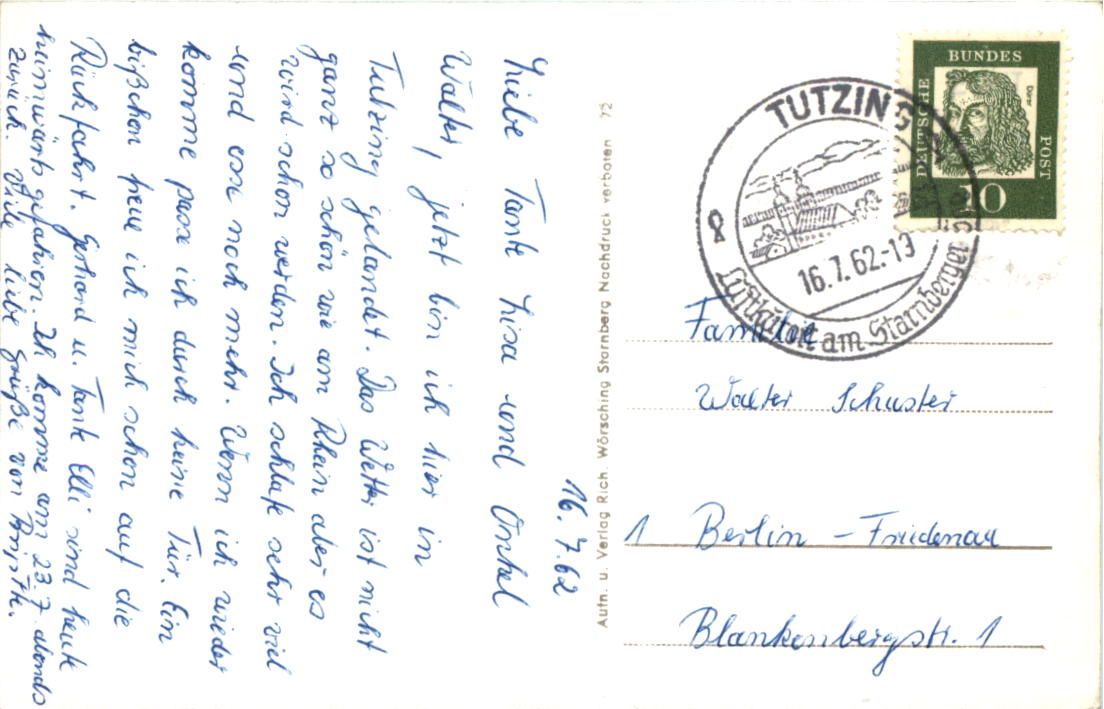 16.7.62
Liebe Tante Lisa und Onkel
Walter, jetzt bin ich hier in
Tutzing gelandet. Das Wetter ist nicht
ganz so schön wie am Rhein aber es
wird schon werden. Ich schlafe sehr viel
und esse noch mehr. Wenn ich wieder
komme passe ich durch keine Tür. Ein
bißchen freue ich mich schon auf die
Rückfahrt. Gerhard u. Tante Elli sind heute
heimwärts gefahren. Ich komme am 23.7. abends
zurück. Viele liebe Grüße von
Autn. u. Verlag Rich. Wörsching Starnberg Nachdruck verboten 72
TUTZING
16.7.62.-19
8
Luftkurort am Starnberger
DEUTSCHE
BUNDES
POST
Dürer
10
Familie
Walter Schuster
1 Berlin - Friedenau
Blankenbergstr. 1